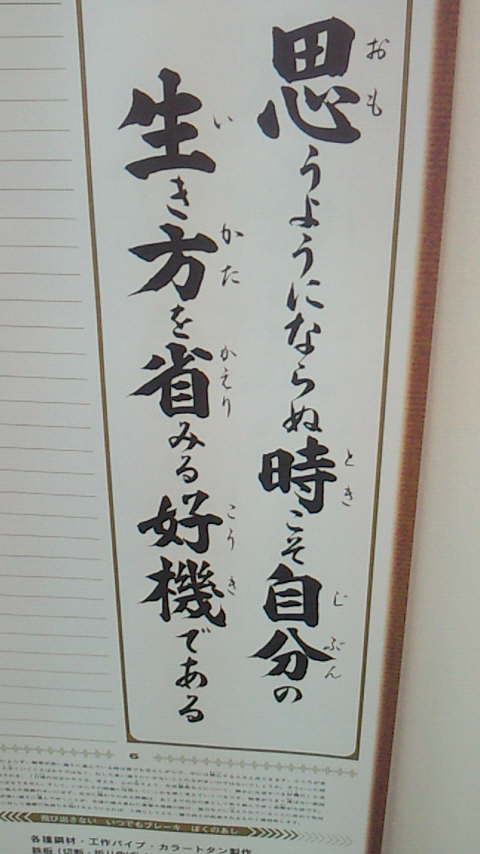 思うようにならぬ時こそ自分の
おも
とき
じぶん
生き方を省みる好機である
い
かた
かえり
こうき
6
飛び出さない いつでもブレーキ ぼくのあし
各種鋼材・工作パイプ・カラートタン製作